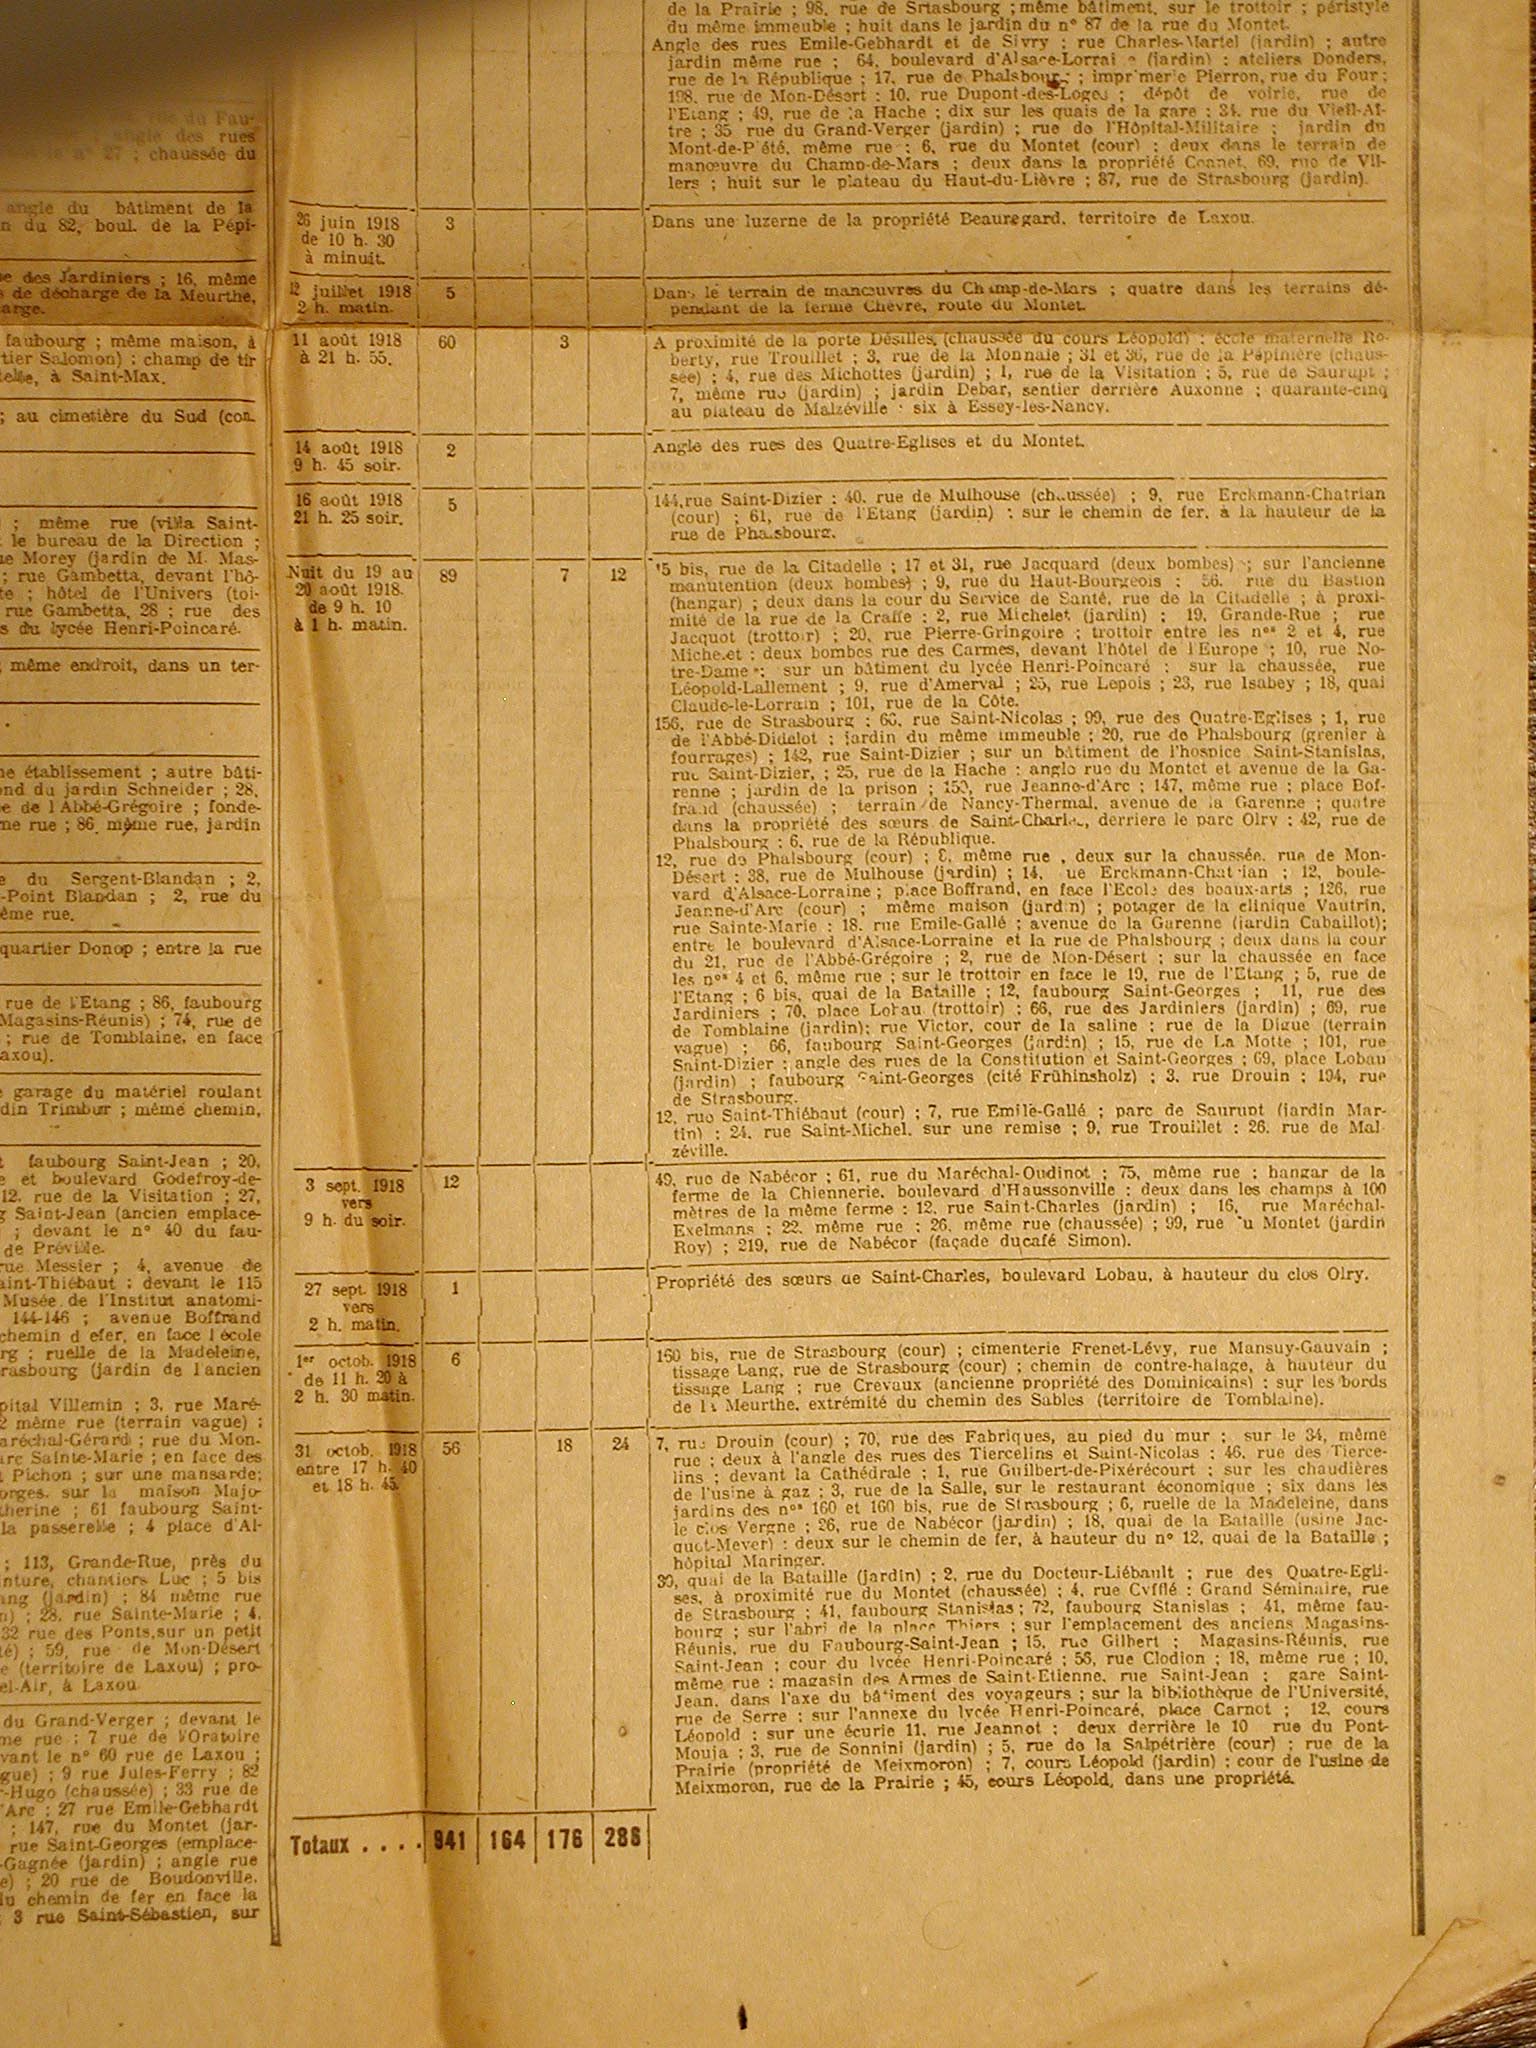 du Fau-
angle des rues
n° 27 ; chaussée du
angle du bâtiment de la
n du 82, boul. de la Pépi-
e des Jardiniers ; 16, même
s de décharge de la Meurthe,
arge.
faubourg ; même maison, à
tier Salomon) ; champ de tir
à Saint-Max.
; au cimetière du Sud (con-
; même rue (villa Saint-
le bureau de la Direction ;
ue Morey (jardin de M. Mas-
; rue Gambetta, devant l'hô-
te ; hôtel de l'Univers (toi-
rue Gambetta, 28 ; rue des
s du lycée Henri-Poincaré.
; même endroit, dans un ter-
ne établissement ; autre bâti-
ond du jardin Schneider ; 28,
e de l'Abbé-Grégoire ; fonde-
ne rue ; 86, même rue, jardin
e du Sergent-Blandan ; 2,
-Point Blandan ; 2, rue du
ême rue.
quartier Donop ; entre la rue
rue de l'Etang ; 86, faubourg
Magasins-Réunis) ; 74, rue de
; rue de Tomblaine, en face
axou).
e garage du matériel roulant
din Trimbur ; même chemin,
t faubourg Saint-Jean ; 20,
e et boulevard Godefroy-de-
12, rue de la Visitation ; 27,
g Saint-Jean (ancien emplace-
; devant le n° 40 du fau-
de Préville.
rue Messier ; 4, avenue de
aint-Thiébaut ; devant le 115
Musée de l'Institut anatomi-
144-146 ; avenue Boffrand
chemin d efer, en face l école
rg ; ruelle de la Madeleine,
rasbourg (jardin de l'ancien
pital Villemin ; 3, rue Maré-
2 même rue (terrain vague) ;
aréchal-Gérard ; rue du Mon-
arc Sainte-Marie ; en face des
t Pichon ; sur une mansarde;
orges, sur la maison Majo-
therine ; 61 faubourg Saint-
la passerelle ; 4 place d'Al-
; 113, Grande-Rue, près du
inture, chantiers Luc ; 5 bis
ang (jardin) ; 84 même rue
n) ; 28, rue Sainte-Marie ; 4,
32 rue des Ponts, sur un petit
té) ; 59, rue de Mon-Désert
e (territoire de Laxou) ; pro-
el-Air, à Laxou.
du Grand-Verger ; devant le
me rue ; 7 rue de l'Oratoire
vant le n° 60 rue de Laxou ;
gue) ; 9 rue Jules-Ferry ; 82
r-Hugo (chaussée) ; 33 rue de
'Arc ; 27 rue Emile-Gebhardt
; 147, rue du Montet (jar-
rue Saint-Georges (emplace-
-Gagnée (jardin) ; angle rue
e) ; 20 rue de Boudonville.
du chemin de fer en face la
3 rue Saint-Sébastien, sur
de la Prairie ; 98, rue de Srtasbourg ; même bâtiment, sur le trottoir ; péristyle
du même immeuble ; huit dans le jardin du n° 87 de la rue du Montet.
Angle des rues Emile-Gebhardt et de Sivry ; rue Charles-Martel (jardin) ; autre
jardin même rue ; 64, boulevard d'Alsace-Lorraine (jardin) ; ateliers Donders,
rue de la République ; 17, rue de Phalsbourg ; imprimerie Pierron, rue du Four ;
198, rue de Mon-Désert ; 10, rue Dupont-des-Loges ; dépôt de voirie, rue de
l'Etang ; 49, rue de la Hache ; dix sur les quais de la gare ; 34, rue du Vieil-Aî-
tre ; 35 rue du Grand-Verger (jardin) ; rue de l'Hôpital-Militaire ; jardin du
Mont-de-Piété, même rue ; 6, rue du Montet (cour) ; deux dans le terrain de
manœuvre du Champ-de-Mars ; deux dans la propriété Connet, 69, rue de Vil-
lers ; huit sur le plateau du Haut-du-Lièvre ; 87, rue de Strasbourg (jardin).
26 juin 1918
de 10 h. 30
à minuit.
3
Dans une luzerne de la propriété Beauregard, territoire de Laxou.
12 juillet 1918
2 h. matin.
5
Dans le terrain de manœuvres du Champ-de-Mars ; quatre dans les terrains dé-
pendant de la ferme Chèvre, route du Montet.
11 août 1918
à 21 h. 55.
60 3
A proximité de la porte Désilles, (chaussée du cours Léopold) ; école maternelle Ro-
berty, rue Trouillet ; 3, rue de la Monnaie ; 31 et 36, rue de la Pépinière (chaus-
sée) ; 4, rue des Michottes (jardin) ; 1, rue de la Visitation ; 5, rue de Saurupt ;
7, même rue (jardin) ; jardin Debar, sentier derrière Auxonne ; quarante-cinq
au plateau de Malzéville ; six à Essey-les-Nancy.
14 août 1918
9 h. 45 soir.
2
Angle des rues des Quatre-Eglises et du Montet.
16 août 1918
21 h. 25 soir.
5
144, rue Saint-Dizier ; 40, rue de Mulhouse (chaussée) ; 9, rue Erckmann-Chatrian
(cour) ; 61, rue de l'Etang (jardin) ; sur le chemin de fer, à la hauteur de la
rue de Phalsbourg.
Nuit du 19 au
20 août 1918.
de 9 h. 10
à 1 h. matin.
89 7 12
15 bis, rue de la Citadelle ; 17 et 31, rue Jacquard (deux bombes) ; sur l'ancienne
manutention (deux bombes) ; 9, rue du Haut-Bourgeois ; 56, rue du Bastion
(hangar) ; deux dans la cour du Service de Santé, rue de la Citadelle ; à proxi-
mité de la rue de la Craffe ; 2, rue Michelet (jardin) ; 19, Grande-Rue ; rue
Jacquot (trottoir) ; 20, rue Pierre-Gringoire ; trottoir entre les nos 2 et 4, rue
Michelet ; deux bombes rue des Carmes, devant l'hôtel de l'Europe ; 10, rue No-
tre-Dame ; sur un bâtiment du lycée Henri-Poincaré ; sur la chaussée, rue
Léopold-Lallement ; 9, rue d'Amerval ; 25, rue Lepois ; 23, rue Isabey ; 18, quai
Claude-le-Lorrain ; 101, rue de la Côte.
156, rue de Strasbourg ; 66, rue Saint-Nicolas ; 99, rue des Quatre-Eglises ; 1, rue
de l'Abbé-Didelot ; jardin du même immeuble ; 20, rue de Phalsbourg (grenier à
fourrages) ; 142, rue Saint-Dizier ; sur un bâtiment de l'hospice Saint-Stanislas,
rue Saint-Dizier, ; 25, rue de la Hache ; angle rue du Montet et avenue de la Ga-
renne ; jardin de la prison ; 150, rue Jeanne-d'Arc ; 147, même rue ; place Bof-
frand (chaussée) ; terrain de Nancy-Thermal, avenue de la Garenne ; quatre
dans la propriété des sœurs de Saint-Charles, derrière le parc Olry ; 42, rue de
Phalsbourg ; 6, rue de la République.
12, rue de Phalsbourg (cour) ; 8, même rue , deux sur la chaussée, rue de Mon-
Désert ; 38, rue de Mulhouse (jardin) ; 14, ue Erckmann-Chatrian ; 12, boule-
vard d'Alsace-Lorraine ; place Boffrand, en face l'Ecole des beaux-arts ; 126, rue
Jeanne-d'Arc (cour) ; même maison (jardin) ; potager de la clinique Vautrin,
rue Sainte-Marie ; 18, rue Emile-Gallé ; avenue de la Garenne (jardin Cabaillot);
entre le boulevard d'Alsace-Lorraine et la rue de Phalsbourg ; deux dans la cour
du 21, rue de l'Abbé-Grégoire ; 2, rue de Mon-Désert ; sur la chaussée en face
les nos 4 et 6, même rue ; sur le trottoir en face le 19, rue de l'Etang ; 5, rue de
l'Etang ; 6 bis, quai de la Bataille ; 12, faubourg Saint-Georges ; 11, rue des
Jardiniers ; 70, place Lobau (trottoir) ; 66, rue des Jardiniers (jardin) ; 69, rue
de Tomblaine (jardin); rue Victor, cour de la saline ; rue de la Digue (terrain
vague) ; 66, faubourg Saint-Georges (jardin) ; 15, rue de La Motte ; 101, rue
Saint-Dizier ; angle des rues de la Constitution et Saint-Georges ; 69, place Lobau
(jardin) ; faubourg Saint-Georges (cité Frühinsholz) ; 3, rue Drouin ; 194, rue
de Strasbourg.
12, rue Saint-Thiébaut (cour) ; 7, rue Emile-Gallé ; parc de Saurupt (jardin Mar-
tin) ; 24, rue Saint-Michel, sur une remise ; 9, rue Trouillet ; 26, rue de Mal-
zéville.
3 sept. 1918
vers
9 h. du soir.
12
49, rue de Nabécor ; 61, rue du Maréchal-Oudinot ; 75, même rue ; hangar de la
ferme de la Chiennerie, boulevard d'Haussonville ; deux dans les champs à 100
mètres de la même ferme ; 12, rue Saint-Charles (jardin) ; 16, rue Maréchal-
Exelmans ; 22, même rue ; 26, même rue (chaussée) ; 99, rue du Montet (jardin
Roy) ; 219, rue de Nabécor (façade ducafé Simon).
27 sept. 1918
vers
2 h. matin.
1
Propriété des sœurs de Saint-Charles, boulevard Lobau, à hauteur du clos Olry.
1er octob. 1918
de 11 h. 20 à
2 h. 30 matin.
6
160 bis, rue de Strasbourg (cour) ; cimenterie Frenet-Lévy, rue Mansuy-Gauvain ;
tissage Lang, rue de Strasbourg (cour) ; chemin de contre-halage, à hauteur du
tissage Lang ; rue Crevaux (ancienne propriété des Dominicains) ; sur les bords
de la Meurthe, extrémité du chemin des Sables (territoire de Tomblaine).
31 octob. 1918
entre 17 h. 40
et 18 h. 45.
56 18 24
7, rue Drouin (cour) ; 70, rue des Fabriques, au pied du mur ; sur le 34, même
rue ; deux à l'angle des rues des Tiercelins et Saint-Nicolas ; 46, rue des Tierce-
lins ; devant la Cathédrale ; 1, rue Guilbert-de-Pixérécourt ; sur les chaudières
de l'usine à gaz ; 3, rue de la Salle, sur le restaurant économique ; six dans les
jardins des nos 160 et 160 bis, rue de Strasbourg ; 6, ruelle de la Madeleine, dans
le clos Vergne ; 26, rue de Nabécor (jardin) ; 18, quai de la Bataille (usine Jac-
quot-Meyer) ; deux sur le chemin de fer, à hauteur du n° 12, quai de la Bataille ;
hôpital Maringer.
30, quai de la Bataille (jardin) ; 2, rue du Docteur-Liébault ; rue des Quatre-Egli-
ses, à proximité rue du Montet (chaussée) ; 4, rue Cyfflé ; Grand Séminaire, rue
de Strasbourg ; 41, faubourg Stanislas ; 72, faubourg Stanislas ; 41, même fau-
bourg ; sur l'abri de la place Thiers ; sur l'emplacement des anciens Magasins-
Réunis, rue du Faubourg-Saint-Jean ; 15, rue Gilbert ; Magasins-Réunis, rue
Saint-Jean ; cour du lycée Henri-Poincaré ; 56, rue Clodion ; 18, même rue ; 10,
même rue ; magasin des Armes de Saint-Etienne, rue Saint-Jean ; gare Saint-
Jean, dans l'axe du bâtiment des voyageurs ; sur la bibliothèque de l'Université,
rue de Serre ; sur l'annexe du lycée Henri-Poincaré, place Carnot ; 12, cours
Léopold ; sur une écurie 11, rue Jeannot ; deux derrière le 10 rue du Pont-
Mouja ; 3, rue de Sonnini (jardin) ; 5, rue de la Salpêtrière (cour) ; rue de la
Prairie (propriété de Meixmoron) ; 7, cours Léopold (jardin) ; cour de l'usine de
Meixmoron, rue de la Prairie ; 45, cours Léopold, dans une propriété.
Totaux . . . . 941 164 176 286